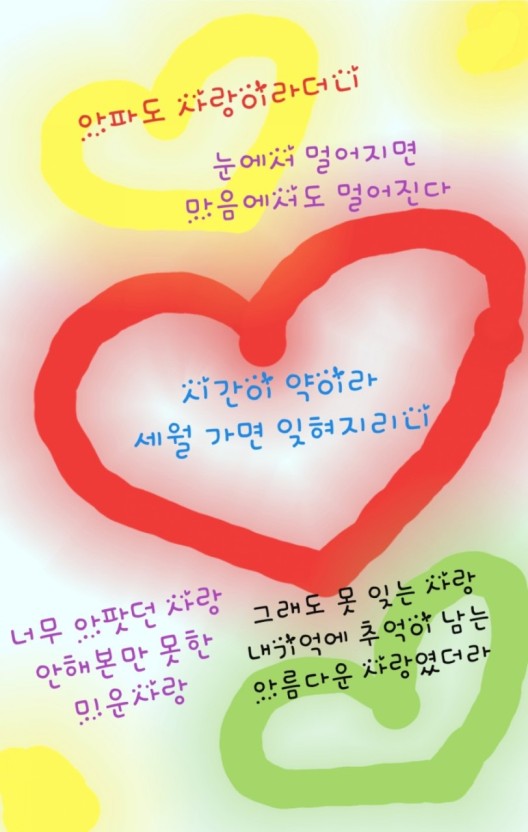 아파도 사랑이라더니
눈에서 멀어지면
마음에서도 멀어진다
시간이 약이라
세월 가면 잊혀지리니
너무 아팟던 사랑
안해본만 못한
미운사랑
그래도 못 잊는 사랑
내기억에 추억이 남는
아름다운 사랑였더라